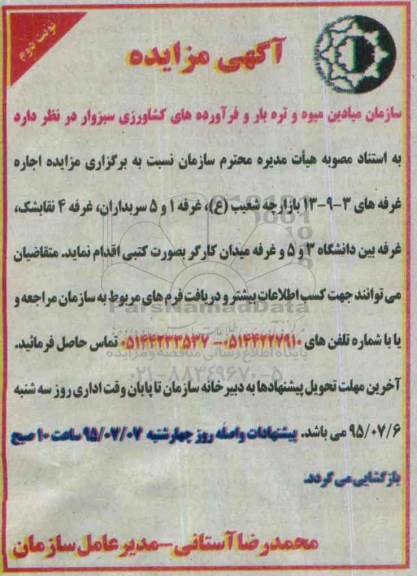 نوبت دوم
آگهی مزایده
سازمان میادین میوه و تره بار و فرآورده های کشاورزی سبزوار در نظر دارد
به استناد مصوبه هیأت مدیره محترم سازمان نسبت به برگزاری مزایده اجاره
غرفه های ۳-۹-۱۳ بازارچه شعیب (ع)، غرفه ۱ و ۵ سربداران، غرفه ۴ نقابشک،
غرفه بین دانشگاه ۳ و ۵ و غرفه میدان کارگر بصورت کتبی اقدام نماید. متقاضیان
می توانند جهت کسب اطلاعات بیشتر و دریافت فرم های مربوط به سازمان مراجعه و
یا با شماره تلفن های ۰۵۱۴۴۲۲۷۹۱۰-۰۵۱۴۴۲۳۳۵۳۷ تماس حاصل فرمائید.
آخرین مهلت تحویل پیشنهادها به دبیر خانه سازمان تا پایان وقت اداری روز سه شنبه
۹۵/۰۷/۶ می باشد. پیشنهادات واصله روز چهارشنبه ۹۵/۰۷/۰۷ ساعت ۱۰ صبح
بازگشایی می گردد.
محمدرضا آستانی-مدیر عامل سازمان
ParsNamadData
پایگاه اطلاع رسانی مناقصه و مزایده
۰۲۱-۸۸۳۴۹۶۷۰-۵